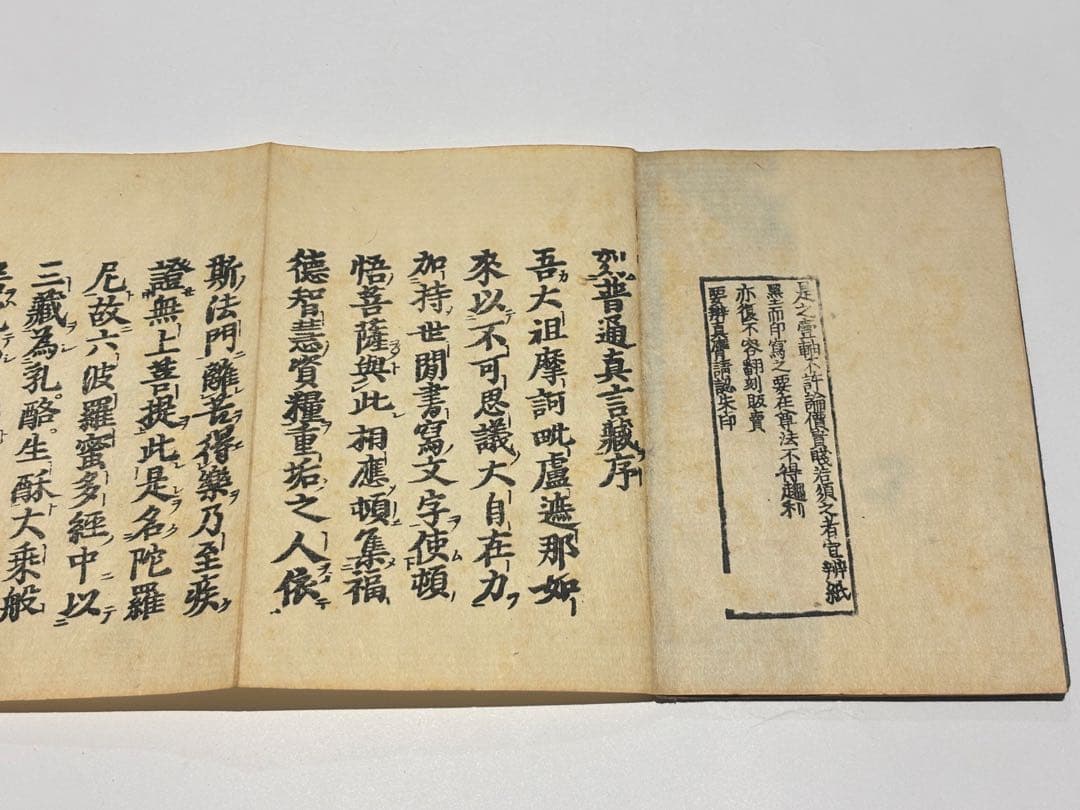 是之壹軸不許論價貴賤若須之者宜辨紙
墨去而印寫之要在尊法不得趨利
亦復不容翻刻販賣
要辨真贋請認朱印
刻普通真言藏序
吾大祖摩訶毗盧遮那如
來以不可思議大自在力
加持世閒書寫文字使頓
悟菩薩與此相應頓集福
德智慧資糧重垢之人依
斯法門離苦得樂乃至疾
證無上菩提此是名陀羅
尼故六波羅蜜多經中以
三藏為乳酪生酥大乘般